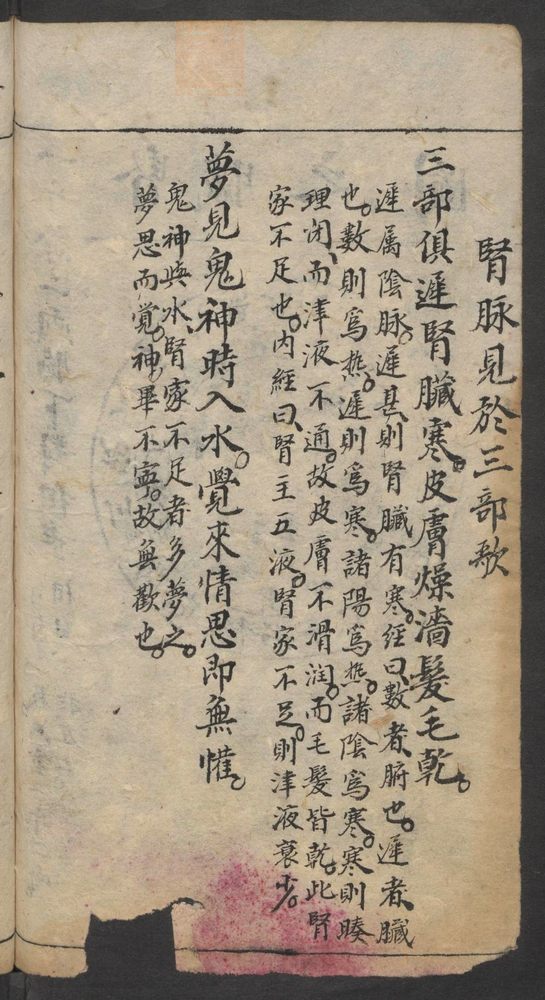 腎脉見於三部歌
三部俱遲腎臟寒。皮膚燥濇髮毛乾。
遲属陰脉。遲甚則腎臟有寒。经曰、數者、腑也。遲者、臟
也。數則爲热。遲則爲寒。諸陽爲热。諸陰爲寒。寒則腠
理闭、而津液不通。故皮膚不滑润。而毛髮皆乾。此腎
家不足也。内經曰、腎主五液。腎家不足。則津液衰少。
夢見鬼神時入水。覺來情思即無懽。
鬼神與水、腎家不足者多夢之。
夢思而覺。神畢不寕。故無歡也。